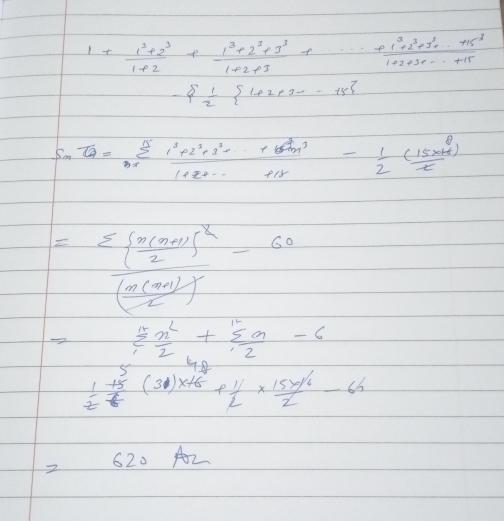 1 + (1³+2³)/(1+2) + (1³+2³+3³)/(1+2+3) + ... + (1³+2³+3³+...+15³)/(1+2+3+...+15)
- { 1/2 { 1+2+3 - - 15 }
Sn = Σ (1³+2³+3³+... + n³)/(1+2+... +15) - 1/2 (15×16)/2
= Σ {n(n+1)/2}² / (n(n+1)/2) - 60
= Σ n²/2 + Σ n/2 - 6
1/2 15/6 (31)×16 + 1/2 × 15×16/2 - 60
= 620 Ans